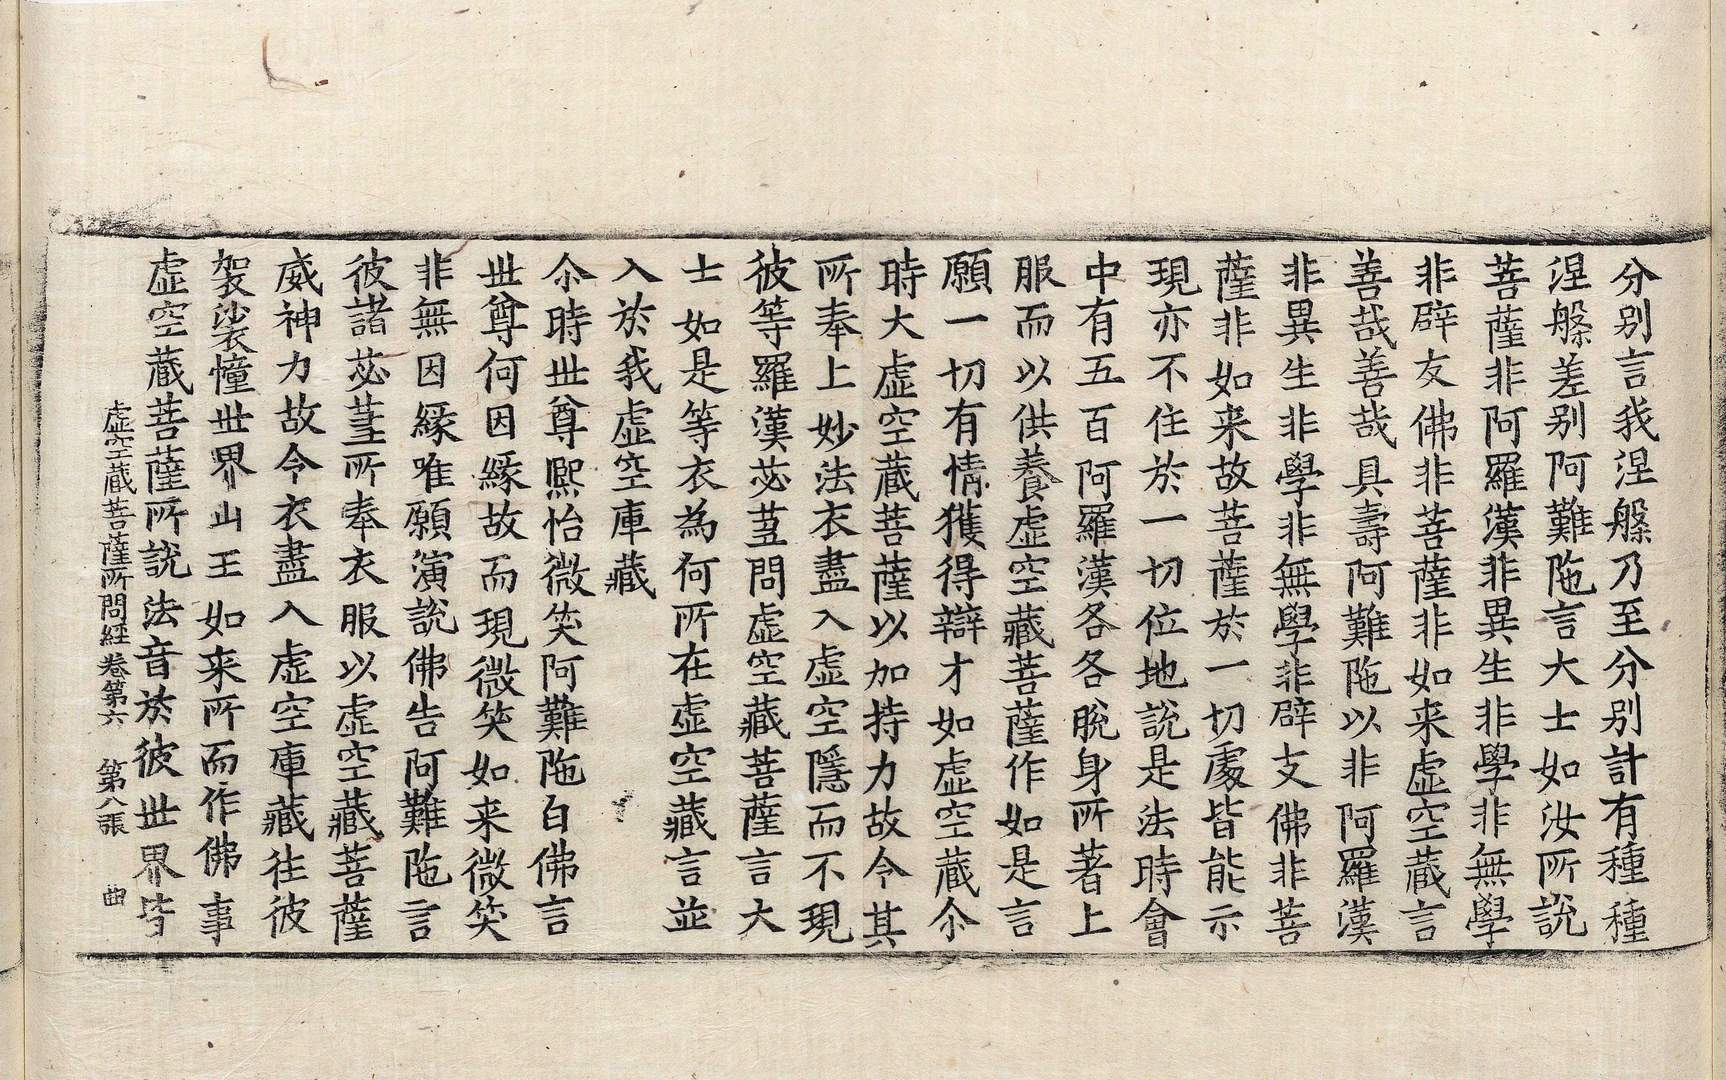 分别言我涅槃乃至分别計有種種
涅槃差别阿難陁言大士如汝所説
菩薩非阿羅漢非異生非學非無學
非辟友佛非菩薩非如来虚空藏言
善哉善哉具壽阿難陁以非阿羅漢
非異生非學非無學非辟支佛非菩
薩非如来故菩薩於一切處皆能示
現亦不住於一切位地說是法時會
中有五百阿羅漢各各脫身所著上
服而以供養虚空藏菩薩作如是言
願一切有情獲得辯才如虚空藏尒
時大虚空藏菩薩以加持力故令其
所奉上妙法衣盡入虚空隱而不現
彼等羅漢苾芻問虚空藏菩薩言大
士如是等衣為何所在虚空藏言並
入於我虚空庫藏
尒時世尊熈怡微笑阿難陁白佛言
世尊何因緣故而現微笑如来微笑
非無因緣唯願演説佛告阿難陁言
彼諸苾芻所奉衣服以虚空藏菩薩
威神力故令衣盡入虚空庫藏往彼
袈裟幢世界山王如来所而作佛事
虚空藏菩薩所説法音於彼世界皆
虚空藏菩薩所問經卷第六　第八張　曲